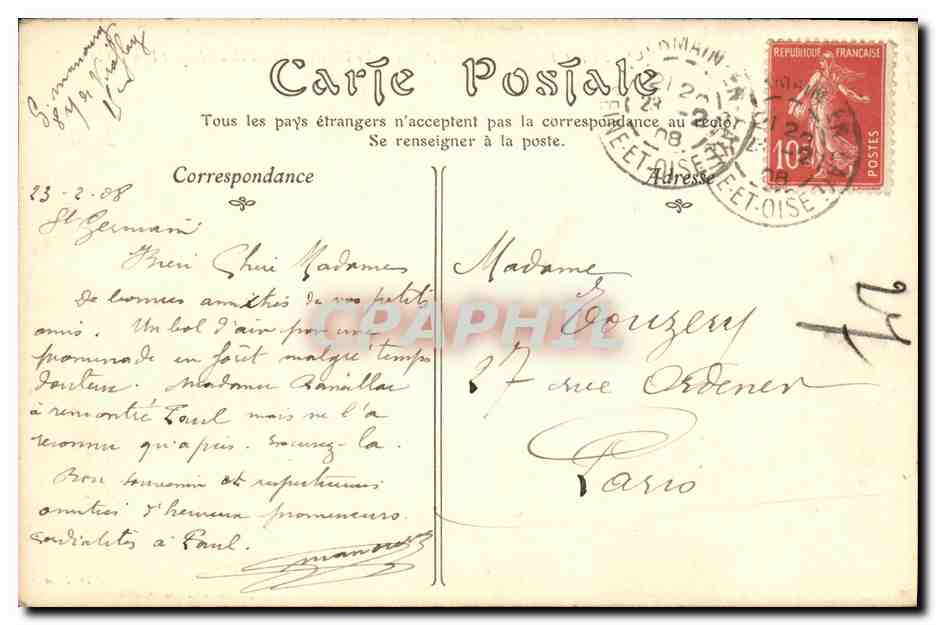 Carte Postale
Tous les pays étrangers n'acceptent pas la correspondance au recto.
Se renseigner à la poste.
REPUBLIQUE FRANÇAISE
10c
POSTES
ET-OISE
Correspondance
Adresse
23-2-08
St Germain
Bien Chère Madame
De bonnes amitiés de vos petits
amis. Un bol d'air par une
promenade en forêt malgré temps
douteux. Madame
à rencontré Paul mais ne l'a
reconnu qu'après. Excusez-la.
Bon souvenir et respectueuses
amitiés d'heureux promeneurs.
Cordialités à Paul.
Madame
E Touzery
27 rue Ordener
Paris
CPAPHIL